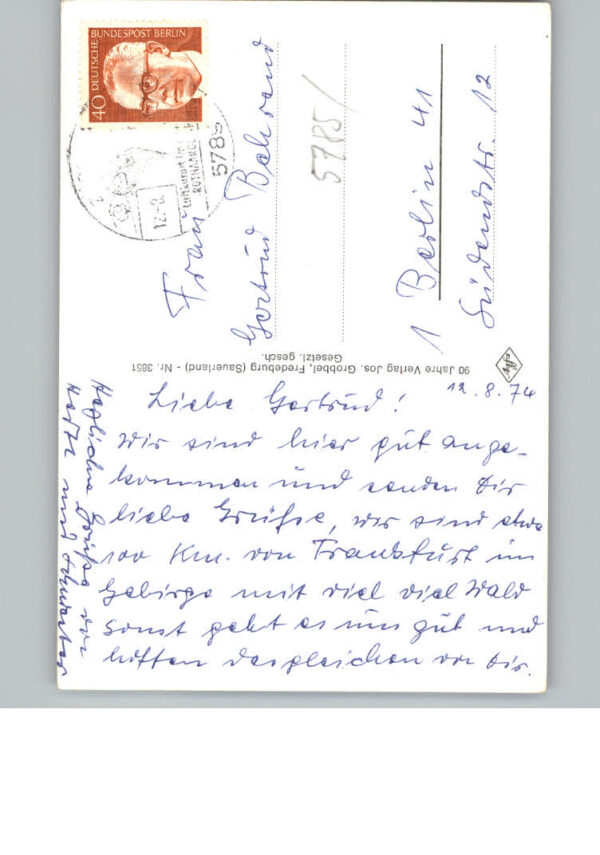 DEUTSCHE
BUNDESPOST BERLIN
40
5789
Luftkurort
ROTHAARGEB
12.-8.
Frau
Gertrud Behrend
5785/
1 Berlin 41
Südendstr. 12
90 Jahre Verlag Jos. Grobbel, Fredeburg (Sauerland) - Nr. 3851
Gesetzl. gesch.
12.8.74
Liebe Gertrud!
Wir sind hier gut ange-
kommen und senden Dir
liebe Grüße, wir sind etwa
100 Km. von Frankfurt im
Gebirge mit viel viel Wald
sonst geht es uns gut und
hoffen desgleichen von Dir.
Herzliche Grüße von
und Schwester